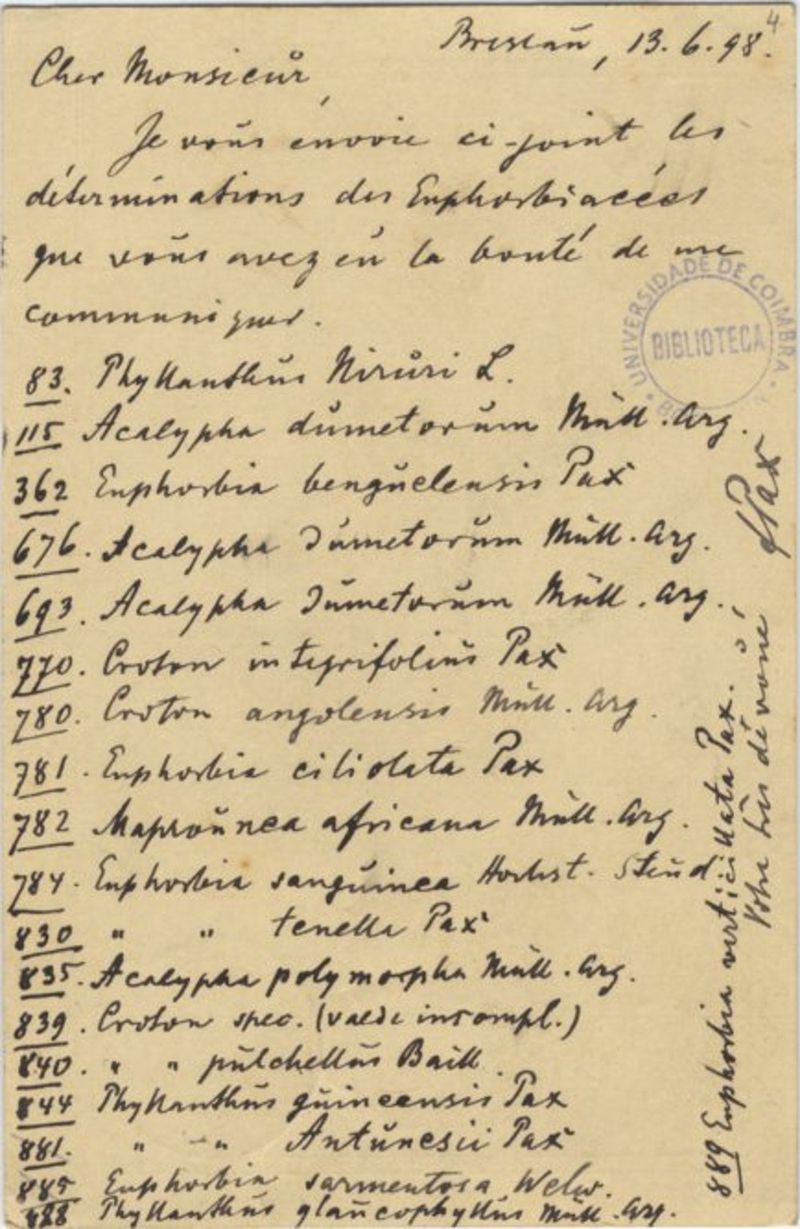 4
Breslau, 13. 6. 98.
Cher Monsieur,
Je vous envoie ci-joint les
déterminations des Euphorbiacées
que vous avez eu la bonté de me
communiquer.
83. Phyllanthus Niruri L.
115 Acalypha dumetorum Müll. Arg.
362 Euphorbia benguelensis Pax
676. Acalypha dumetorum Müll. Arg.
693. Acalypha dumetorum Müll. Arg.
770. Croton integrifolius Pax
780. Croton angolensis Müll. Arg.
781. Euphorbia ciliolata Pax
782 Maprounea africana Müll. Arg.
784. Euphorbia sanguinea Hochst. Steud.
830 " " tenella Pax
835. Acalypha polymorpha Müll. Arg.
839. Croton spec. (valde incompl.)
840. " " pulchellus Baill.
844 Phyllanthus guineensis Pax
881. " " Antunesii Pax
885 Euphorbia sarmentosa Welw.
888 Phyllanthus glaucophyllus Müll. Arg.
889 Euphorbia verticillata Pax.
Votre très dévoué
Pax
UNIVERSIDADE DE COIMBRA
BIBLIOTECA